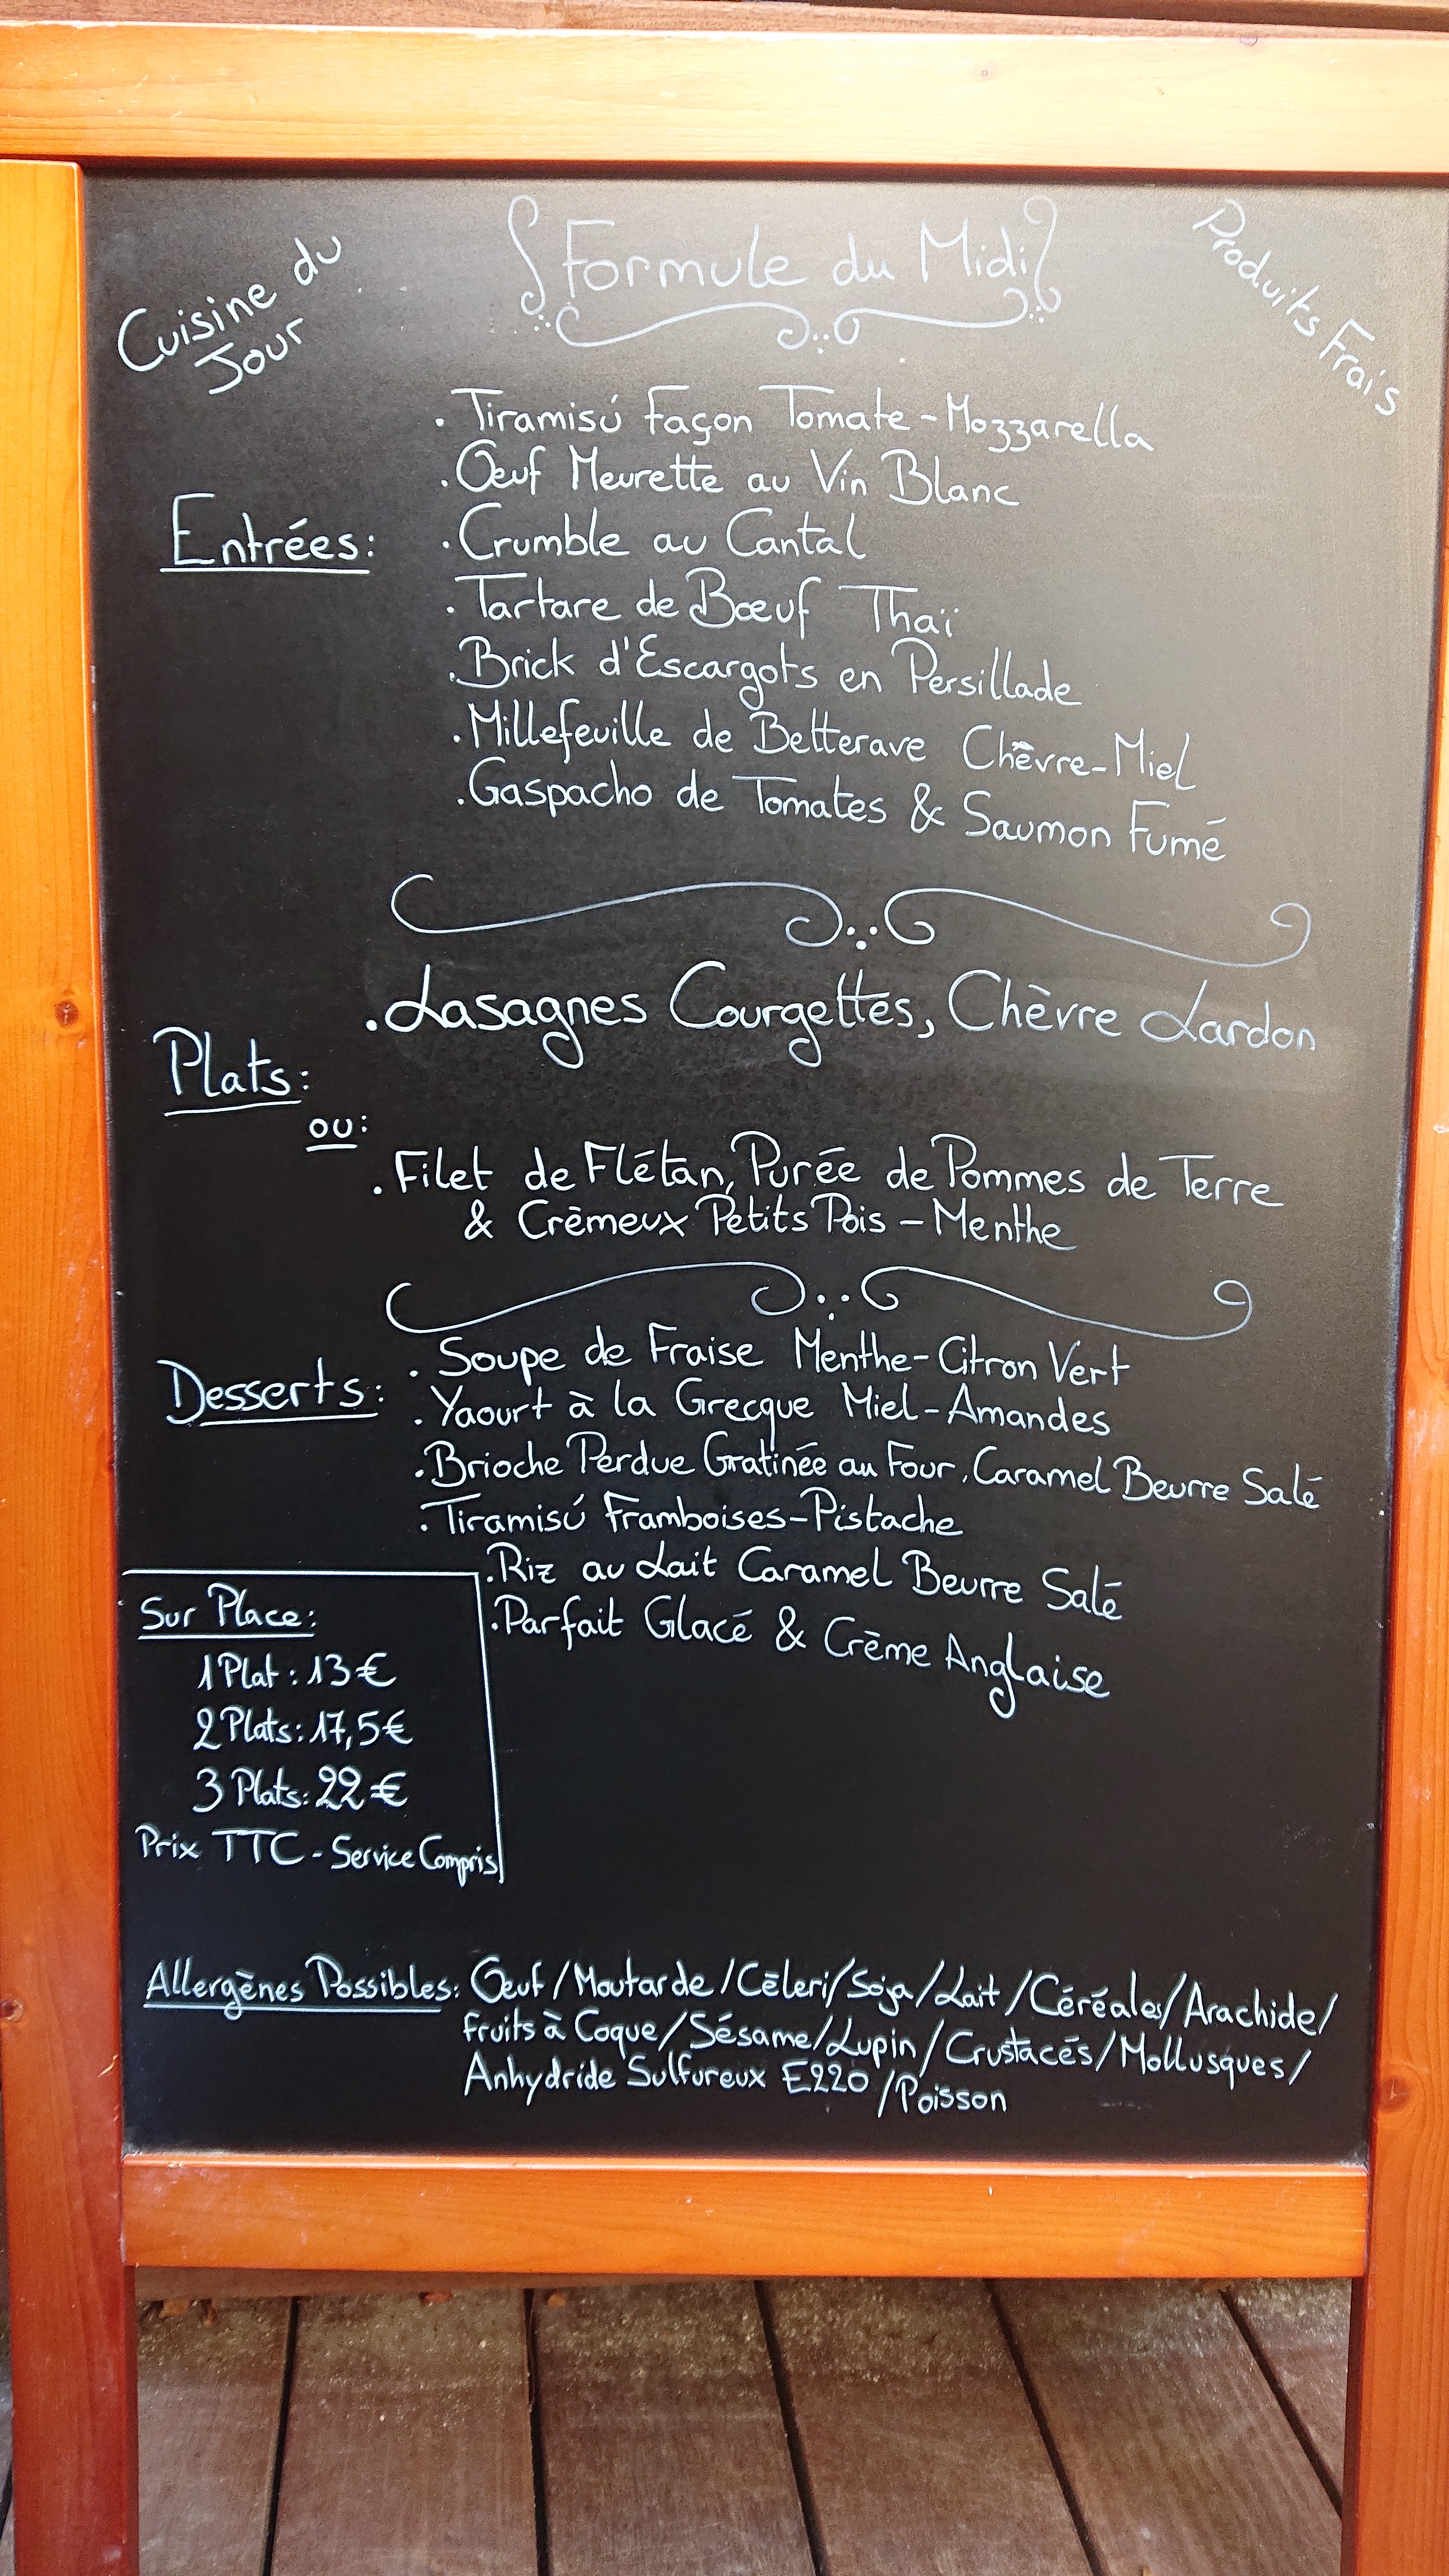 Cuisine du
Jour
Formule du Midi
Produits Frais
Entrées:
. Tiramisú façon Tomate-Mozzarella
. Œuf Meurette au Vin Blanc
. Crumble au Cantal
. Tartare de Bœuf Thaï
. Brick d'Escargots en Persillade
. Millefeuille de Betterave Chèvre-Miel
. Gaspacho de Tomates & Saumon Fumé
Plats:
. Lasagnes Courgettes, Chèvre Lardon
ou:
. Filet de Flétan, Purée de Pommes de Terre
& Crèmeux Petits Pois - Menthe
Desserts:
. Soupe de Fraise Menthe-Citron Vert
. Yaourt à la Grecque Miel-Amandes
. Brioche Perdue Gratinée au Four, Caramel Beurre Salé
. Tiramisú Framboises-Pistache
. Riz au Lait Caramel Beurre Salé
. Parfait Glacé & Crème Anglaise
Sur Place:
1 Plat: 13€
2 Plats: 17,5€
3 Plats: 22€
Prix TTC - Service Compris
Allergènes Possibles: Œuf/Moutarde/Cèleri/Soja/Lait/Céréales/Arachide/
fruits à Coque/Sésame/Lupin/Crustacés/Mollusques/
Anhydride Sulfureux E220/Poisson